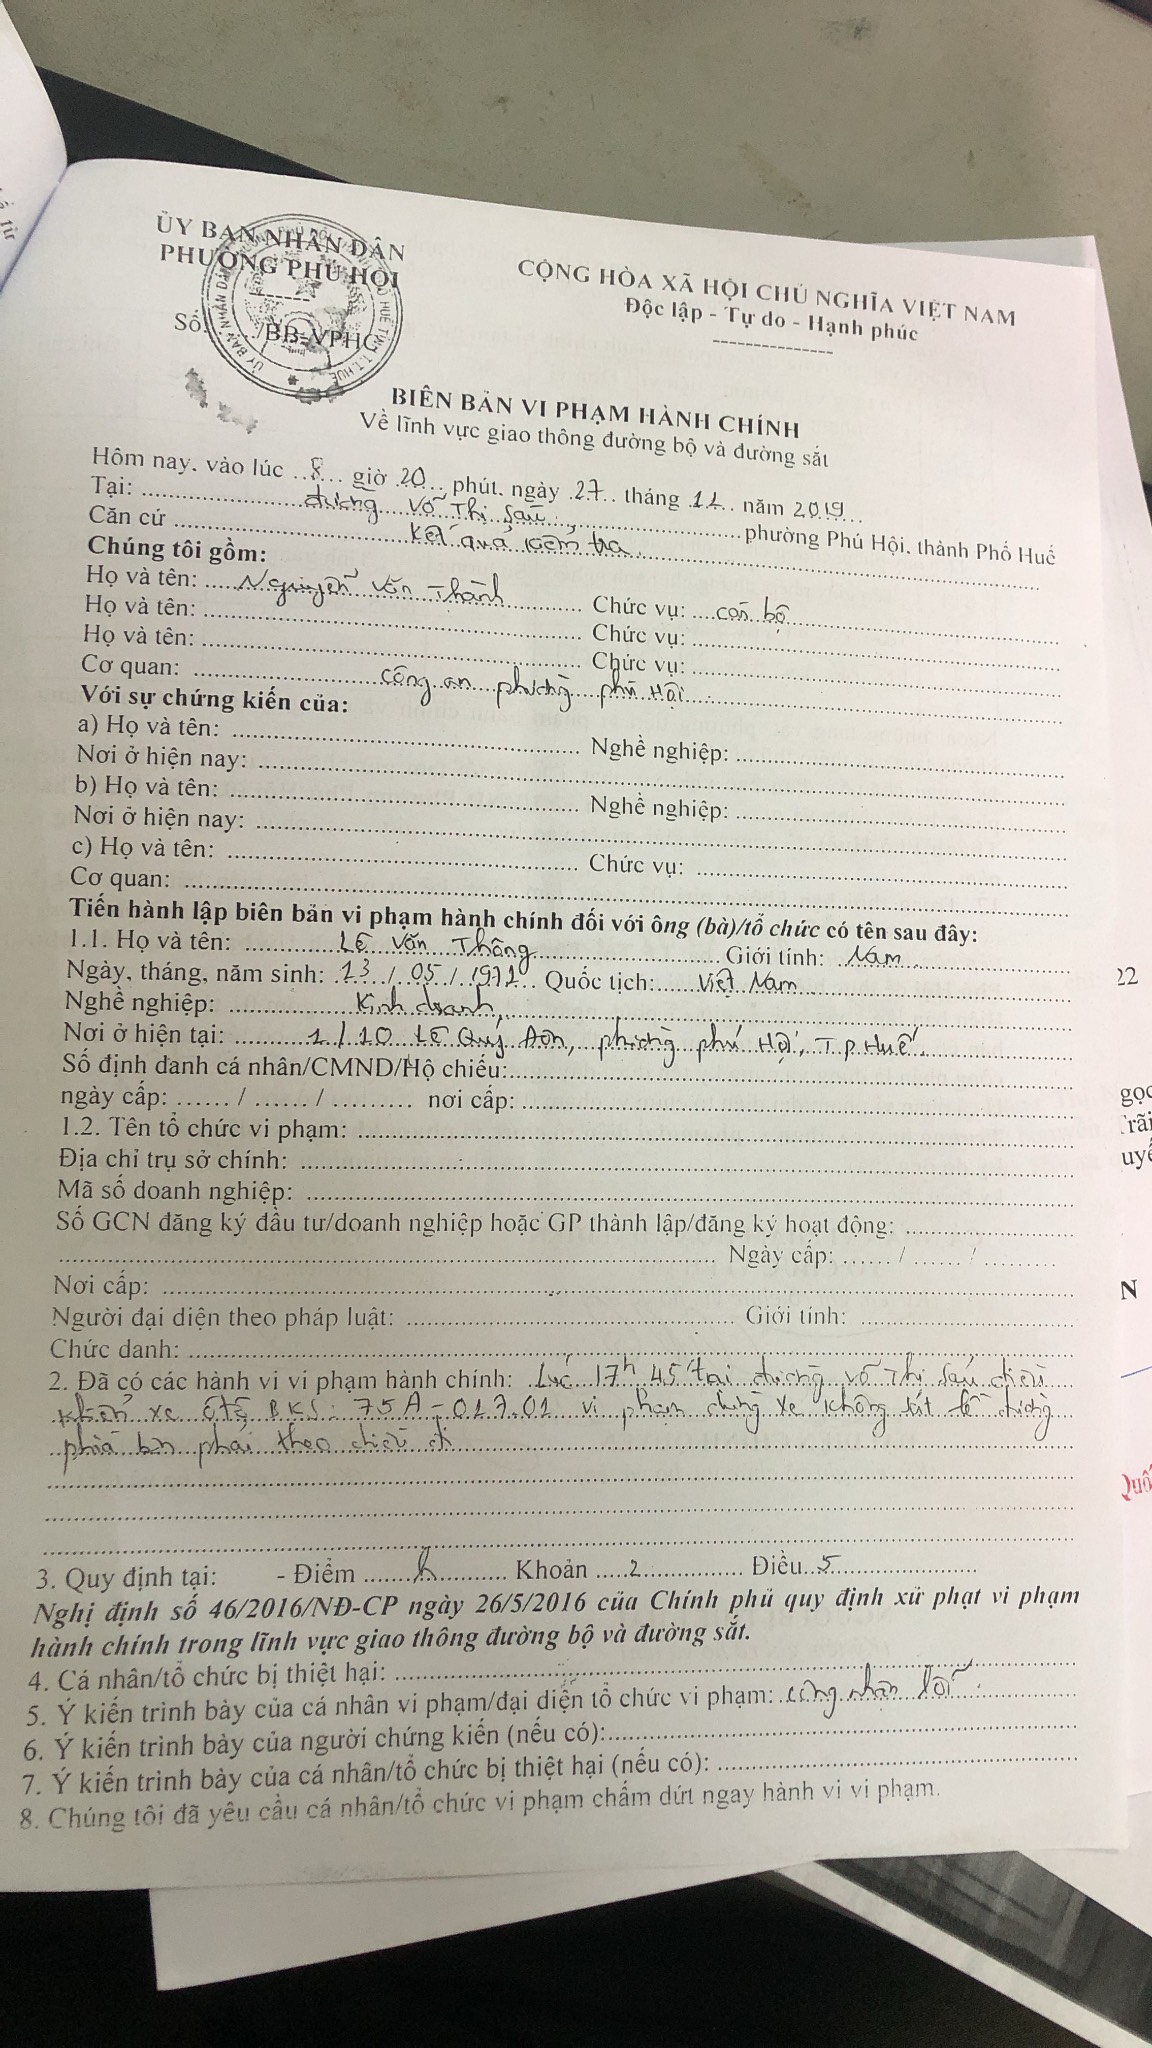 ỦY BAN NHÂN DÂN
PHƯỜNG PHÚ HỘI
CỘNG HÒA XÃ HỘI CHỦ NGHĨA VIỆT NAM
Độc lập - Tự do - Hạnh phúc
Số: BB-VPHC
BIÊN BẢN VI PHẠM HÀNH CHÍNH
Về lĩnh vực giao thông đường bộ và đường sắt
Hôm nay, vào lúc 8 giờ 20 phút, ngày 27 tháng 11 năm 2019
Tại: đường Võ Thị Sáu, phường Phú Hội, thành Phố Huế
Căn cứ kết quả kiểm tra
Chúng tôi gồm:
Họ và tên: Nguyễn Văn Thành Chức vụ: cán bộ
Họ và tên: Chức vụ:
Họ và tên: Chức vụ:
Cơ quan: công an phường phú Hội
Với sự chứng kiến của:
a) Họ và tên: Nghề nghiệp:
Nơi ở hiện nay:
b) Họ và tên: Nghề nghiệp:
Nơi ở hiện nay:
c) Họ và tên: Chức vụ:
Cơ quan:
Tiến hành lập biên bản vi phạm hành chính đối với ông (bà)/tổ chức có tên sau đây:
1.1. Họ và tên: Lê Văn Thông Giới tính: Nam
Ngày, tháng, năm sinh: 13/05/1971 Quốc tịch: Việt Nam
Nghề nghiệp: Kinh doanh
Nơi ở hiện tại: 1/10 Lê Quý Đôn, phường phú Hội, TP Huế
Số định danh cá nhân/CMND/Hộ chiếu:
ngày cấp: / / nơi cấp:
1.2. Tên tổ chức vi phạm:
Địa chỉ trụ sở chính:
Mã số doanh nghiệp:
Số GCN đăng ký đầu tư/doanh nghiệp hoặc GP thành lập/đăng ký hoạt động:
Ngày cấp: / /
Nơi cấp:
Người đại diện theo pháp luật: Giới tính:
Chức danh:
2. Đã có các hành vi vi phạm hành chính: Lúc 17h 45' tại đường Võ Thị Sáu điều
khiển xe ôtô BKS: 75A-017.01 vi phạm dừng xe không sát lề đường
phía bên phải theo chiều đi
3. Quy định tại: - Điểm h Khoản 2 Điều 5
Nghị định số 46/2016/NĐ-CP ngày 26/5/2016 của Chính phủ quy định xử phạt vi phạm
hành chính trong lĩnh vực giao thông đường bộ và đường sắt.
4. Cá nhân/tổ chức bị thiệt hại:
5. Ý kiến trình bày của cá nhân vi phạm/đại diện tổ chức vi phạm: công nhận lỗi
6. Ý kiến trình bày của người chứng kiến (nếu có):
7. Ý kiến trình bày của cá nhân/tổ chức bị thiệt hại (nếu có):
8. Chúng tôi đã yêu cầu cá nhân/tổ chức vi phạm chấm dứt ngay hành vi vi phạm.